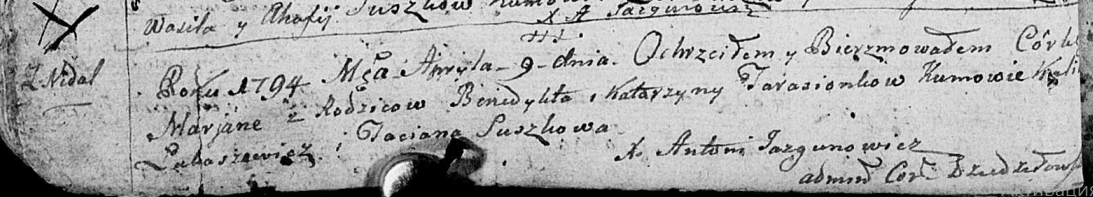 Wasila y Ahafij Suszkow
X A Jazgunowicz
Z Nidal
Roku 1794 Mca Apryla 9 dnia Ochrzciłem y Bierzmowałem Córkę
Marjanę z Rodzicow Benedykta i Katarzyny Tarasionkow Kumowie
Łabaszewicz i Taciana Suszkowa
X Antoni Jazgunowicz